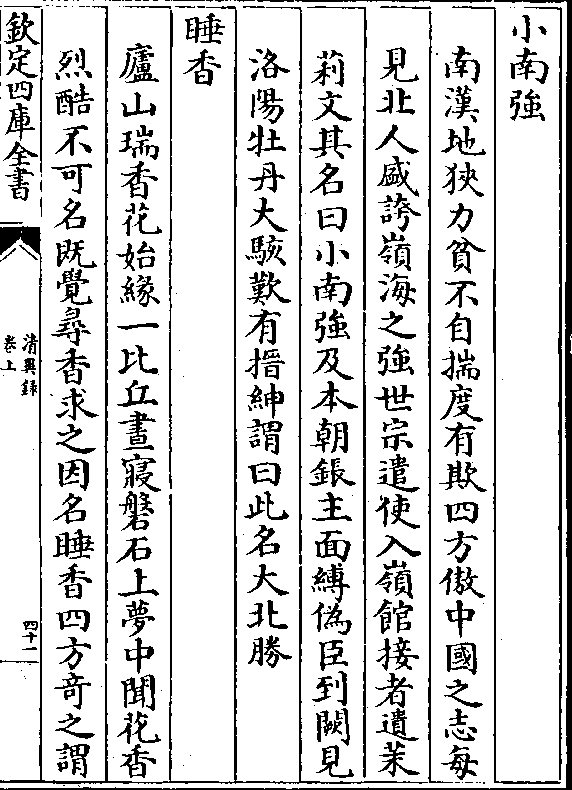 小南強
南漢地狹力貧不自揣度有欺四方傲中國之志每
見北人盛誇嶺海之強世宗遣使入嶺館接者遺茉
莉文其名曰小南強及本朝鋹主面縛偽臣到闕見
洛陽牡丹大駭歎有搢紳謂曰此名大北勝
睡香
廬山瑞香花始緣一比丘晝寢磐石上夢中聞花香
烈酷不可名既覺尋香求之因名睡香四方奇之謂
欽定四庫全書
清異錄
卷上
四十一